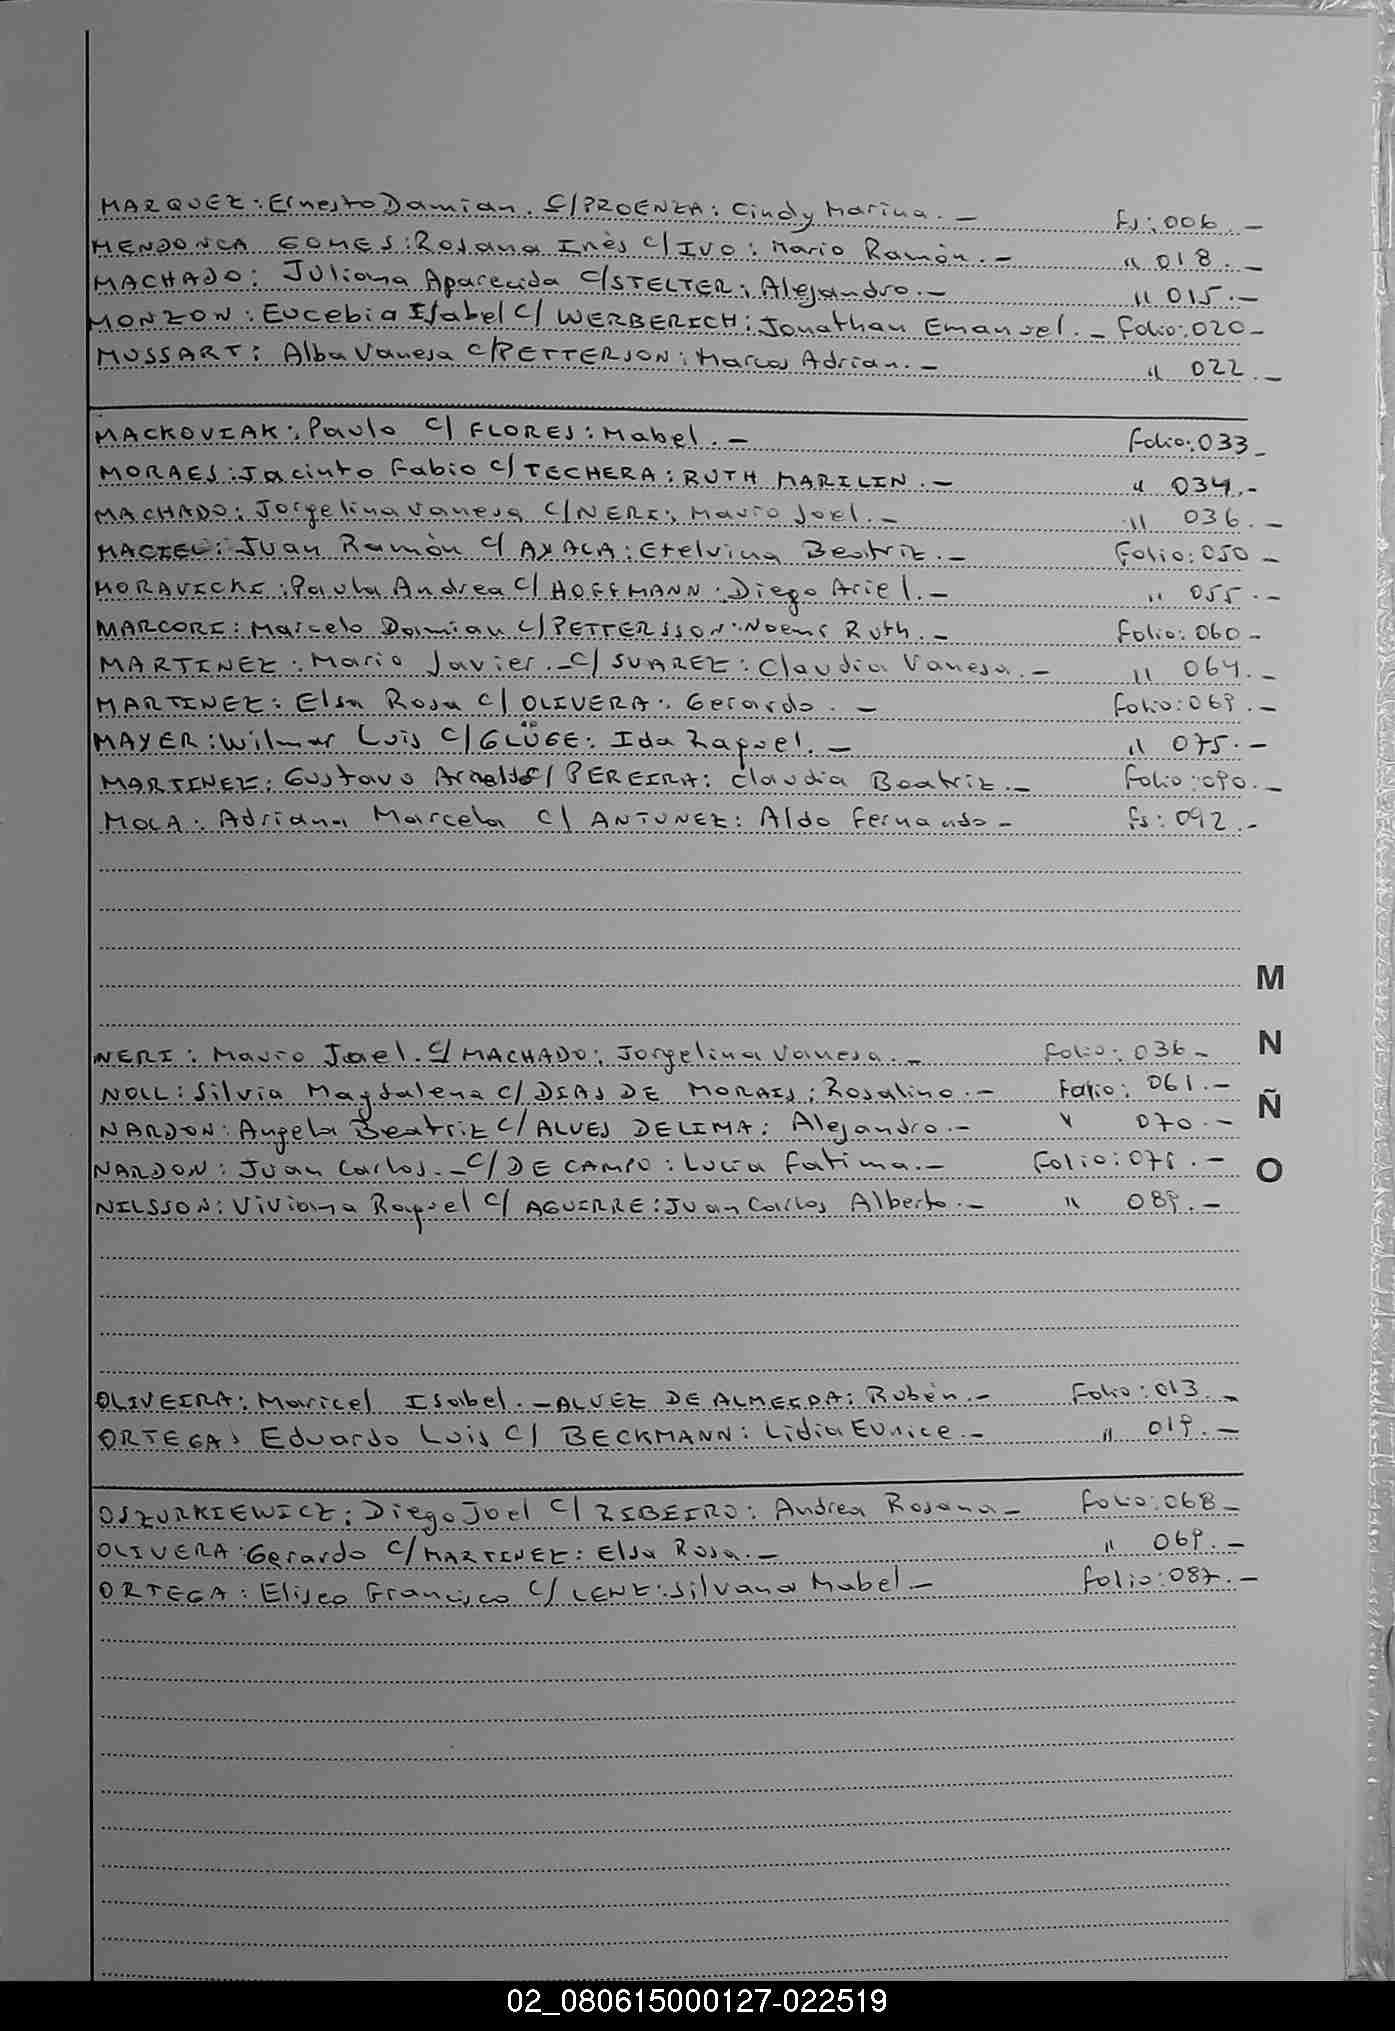 MARQUEZ: Ernesto Damian. C/PROENZA: Cindy Marina. — Fs: 006. —
MENDONCA GOMES: Rosana Inès C/ IVO: Mario Ramòn. — " 018. —
MACHADO: Juliana Aparecida C/STELTER: Alejandro. — " 015. —
MONZON: Eucebia Isabel C/ WERBERICH: Jonathan Emanuel. — Folio: 020 —
MUSSART: Alba Vanesa C/PETTERSON: Marcos Adrian. — " 022. —
MACKOVIAK: Paulo C/ FLORES: Mabel. — Folio: 033 —
MORAES: Jacinto Fabio C/ TECHERA: RUTH MARILIN. — " 034. —
MACHADO: Jorgelina Vanesa C/NERI: Mauro Joel. — " 036. —
MACIEL: Juan Ramòn C/ AYALA: Etelvina Beatriz. — Folio: 050 —
MORAVICKI: Paula Andrea C/ HOFFMANN: Diego Ariel. — " 055. —
MARCORI: Marcelo Damian C/PETTERSSON: Noemi Ruth. — Folio: 060 —
MARTINEZ: Mario Javier. — C/ SUAREZ: Claudia Vanesa. — " 064. —
MARTINEZ: Elsa Rosa C/ OLIVERA: Gerardo. — Folio: 069. —
MAYER: Wilmar Luis C/ GLÜGE: Ida Raquel. — " 075. —
MARTINEZ: Gustavo Arnaldo C/ PEREIRA: Claudia Beatriz. — Folio: 090. —
MOLA: Adriana Marcela C/ ANTUNEZ: Aldo Fernando — Fs: 092. —
M
N
Ñ
O
NERI: Mauro Joel. C/ MACHADO: Jorgelina Vanesa. — Folio: 036 —
NOLL: Silvia Magdalena C/ DIAS DE MORAIS: Rosalino. — Folio: 061. —
NARDON: Angela Beatriz C/ ALVES DE LIMA: Alejandro. — " 070. —
NARDON: Juan Carlos. — C/ DE CAMPO: Lucia Fatima. — Folio: 078. —
NILSSON: Viviana Raquel C/ AGUIRRE: Juan Carlos Alberto. — " 089. —
OLIVEIRA: Maricel Isabel. — ALVEZ DE ALMEIDA: Rubèn. — Folio: 013. —
ORTEGA: Eduardo Luis C/ BECKMANN: Lidia Eunice. — " 019. —
OSZURKIEWICZ: Diego Joel C/ RIBEIRO: Andrea Rosana — Folio: 068 —
OLIVERA: Gerardo C/MARTINEZ: Elsa Rosa. — " 069. —
ORTEGA: Eliseo Francisco C/ LENZ: Silvana Mabel. — Folio: 087. —
02_080615000127-022519